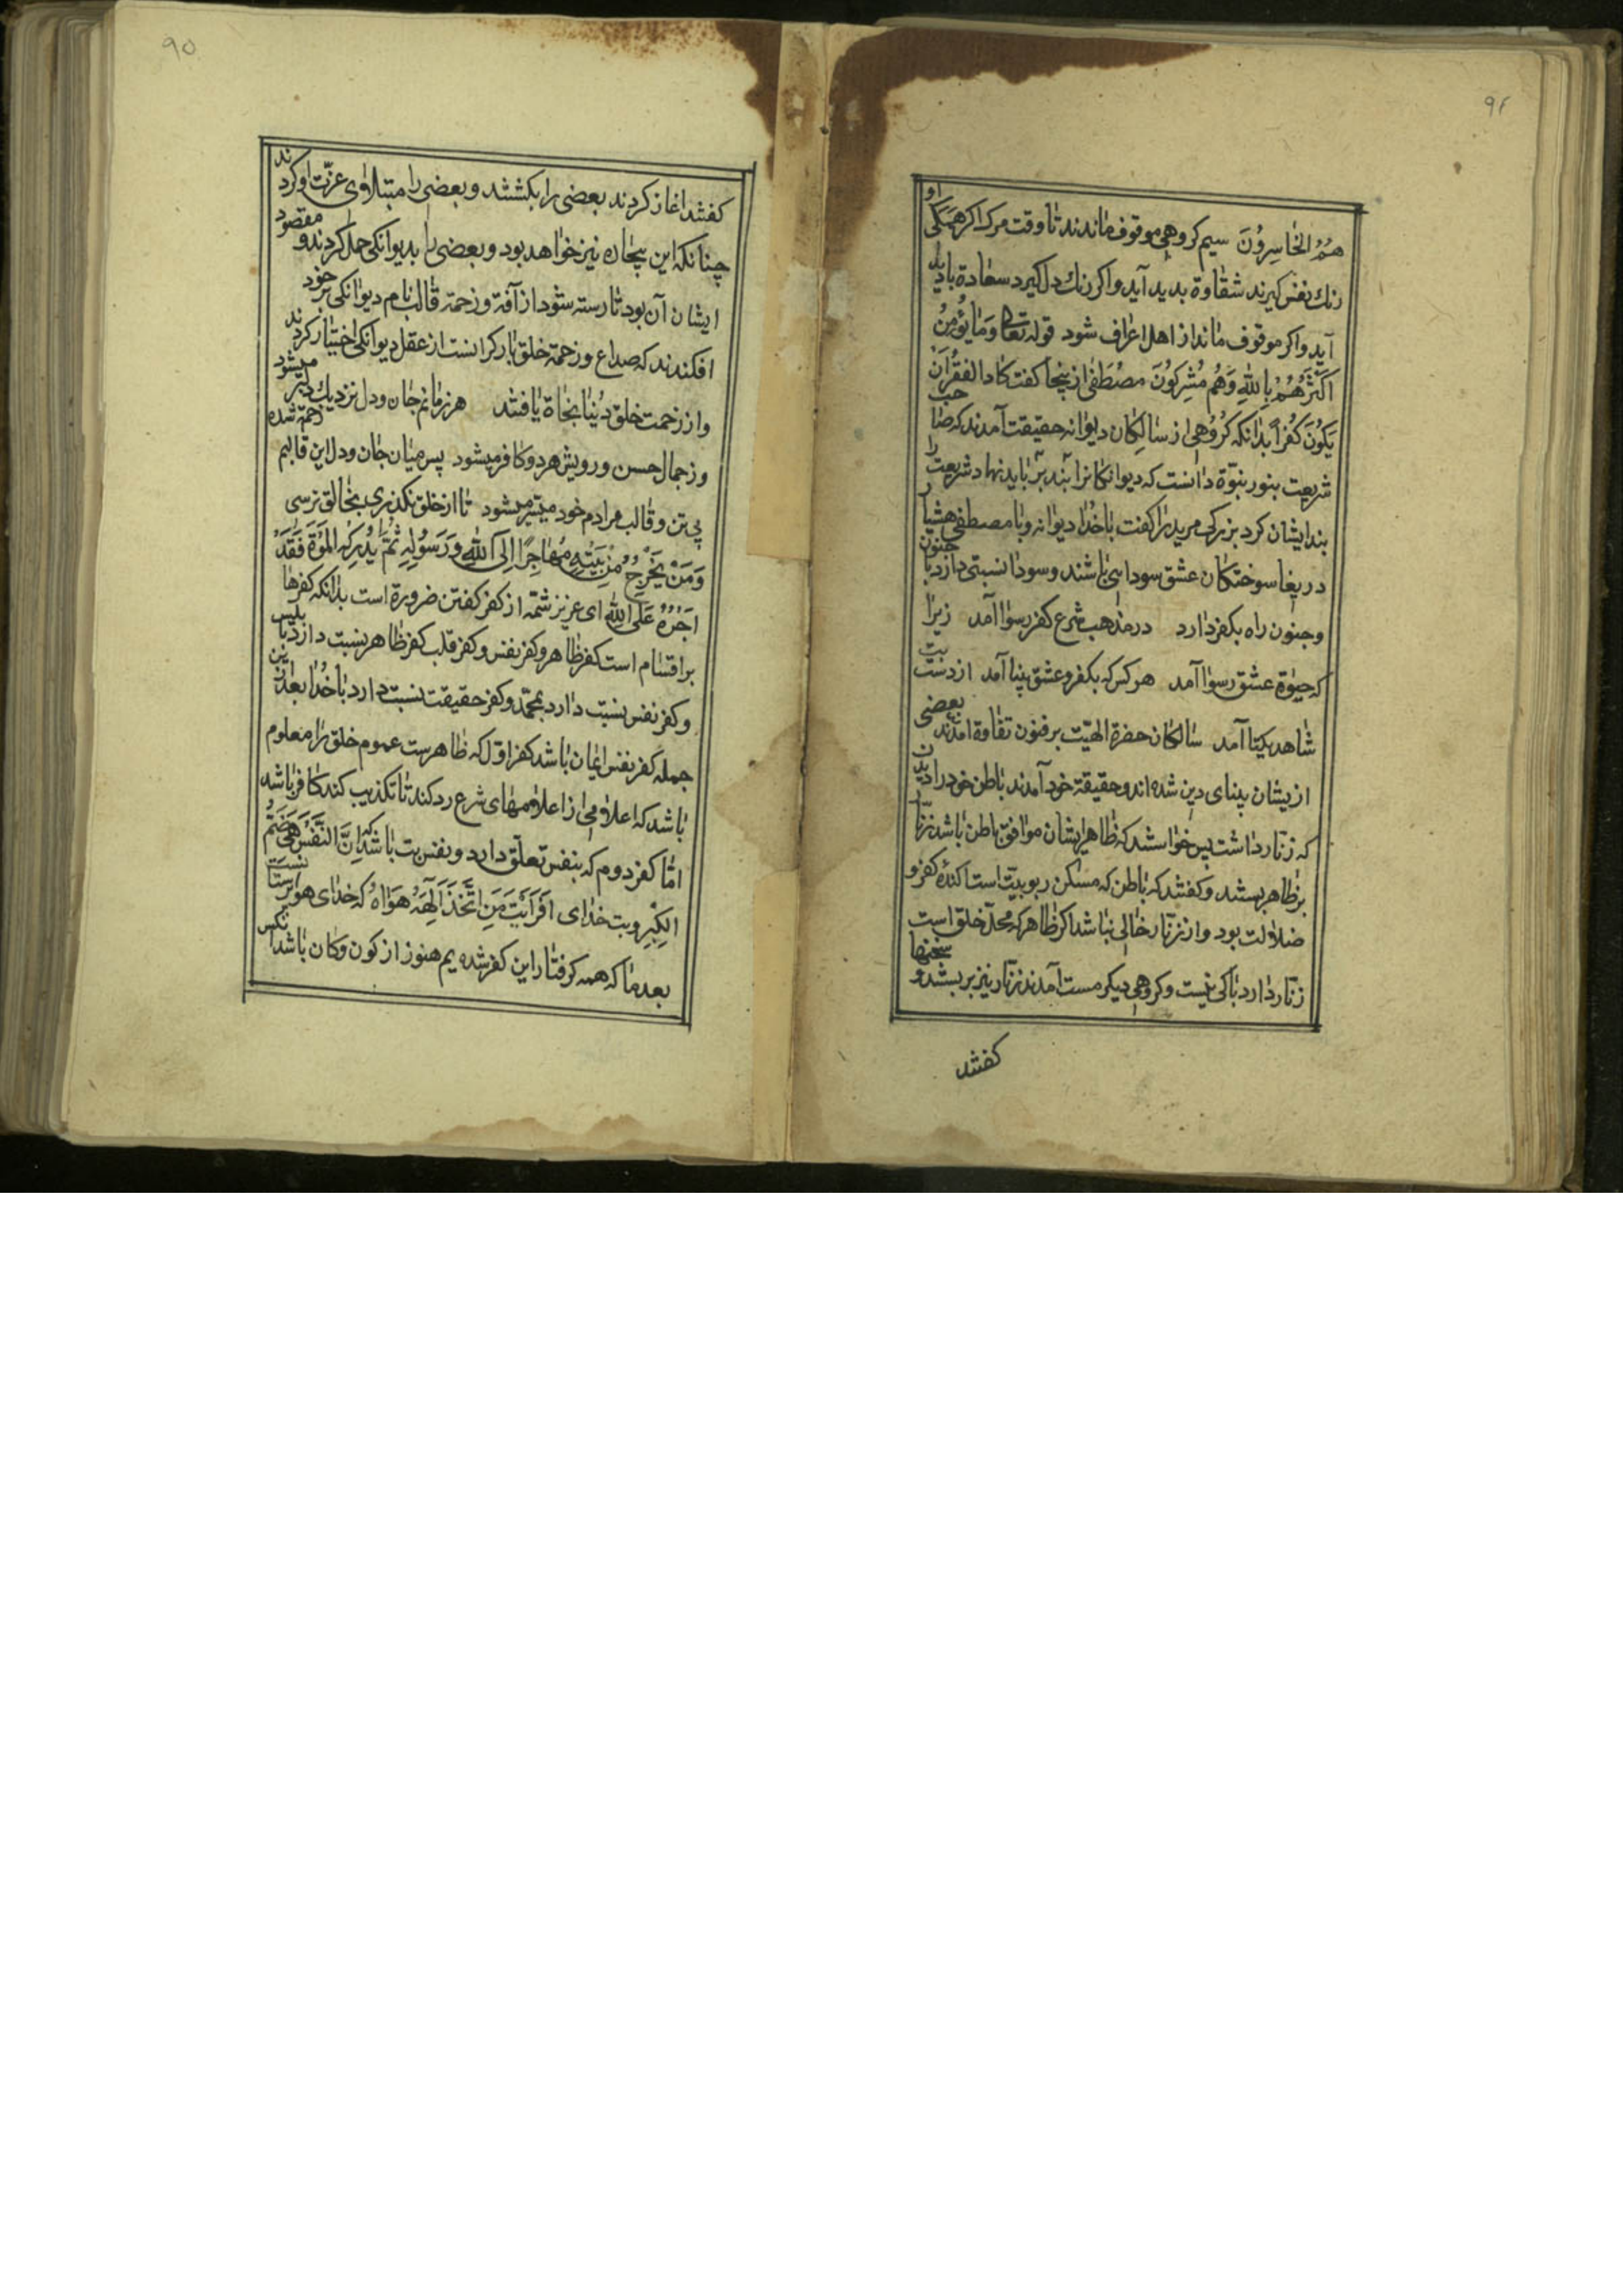 ۹۴
هُمُ الخَاسِرُونَ سیم کروهی موقوف ماندند تا وقت مرک اکر همکی او
رنك نفس کیرند شقاوة بدید آید واکر رنك دل کیرد سعادة بادید
آید واکر موقوف ماند از اهل اعراف شود قوله تعالی وَمَا یُؤْمِنُ
اَکْثَرُهُمْ بِاللهِ وَهُم مُشرِکُونَ مصْطَفی از پنجا کفت کَادَ الفَقْرُ اَنْ
یَکُونَ کُفْراً بدانکه کروهی از سالکان دیوانه حقیقت آمدند که صاحب
شریعت بنور نبوّة دانست که دیوانکانرا بند بر باید نهاد شریعت را
بند ایشان کرد بزرکی مریدرا کفت باخدا دیوانه وبا مصطفی هشیار
دریغا سوختکان عشق سودایی باشند وسودا نسبتی دارد با جنون
وجنون راه بکفر دارد در مذهب شرع کفر رسوا آمد زیرا
که جنوة عشق رسوا آمد هر کس که بکفر و عشق بینا آمد از دست بت
شاهد یکتا آمد سالکان حضرة الهیّت بر فنون تفاوة امدند بعضی
ازیشان بینای دین شده اند وحقیقة خود آمدند باطن خود را دیدند
که زنّار داشت پس خواستند که ظاهر ایشان موافق باطن باشد زنّار
بر ظاهر بستند وکفتند که باطن که مسکن ربوبیّت است اکنده کفر و
ضلالت بود واز زنّار خالی نباشد اکر ظاهر که محلّ خلق است
زنّار دارد باکی نیست وکروهی دیکر مست آمدند زنّار نیز بربستند و سخنها
کفتند
۹۵
کفتند اغاز کردند بعضی را بکشتند وبعضی را مبتلاوی عزّت او کردند
چنانکه این بیچاره نیز خواهد بود وبعضی را بدیوانکی حمل کردند و مقصود
ایشان آن بود تا رسته شود از آفة وزحمة قالب نام دیوانکی بر خود
افکندند که صداع وزحمة خلق بار کرانست از عقل دیوانکی اختیار کردند
واز زحمت خلق دُنیا نجاة یافتند هر زمانم جان ودل نزدیك دلبر میشود
وز جمال حسن ورویش هر دو کافر میشود پس میان جان ودل این قالبم زحمة شده
بی تن وقالب مرادم خود میسّر میشود تا از خلق نکذری بخالق نرسی
وَمَنْ یَخْرُجْ مِنْ بَیْتِهِ مُهَاجِرًا اِلَی اللهِ وَرَسُولِهِ ثُمَّ یُدْرِکْهُ المَوْة فَقَدْ وَقَعَ
اَجْرُهُ عَلَی اللهِ ای عزیز شمّه از کفر کفتن ضرورة است بدانکه کفرها
بر اقسام است کفر ظاهر وکفر نفس وکفر قلب کفر ظاهر نسبت دارد با بلیس
وکفر نفس نسبت دارد بمحمّد وکفر حقیقت نسبت دارد باخدا بعد ازین
جمله کفر نفس ایمان باشد کفر اوّل که ظاهرست عموم خلق را معلوم
باشد که اعلامی از اعلامهای شرع رد کند تا تکذیب کند کافر باشد
امّا کفر دوم که بنفس تعلّق دارد ونفس بت باشد که اِنَّ النَّفْسَ هِیَ صَنَمُ
الکِبْرِ وبت خدای اَفَرَاَیْتَ مَنِ اتَّخَذَ اِلٰهَهُ هَوٰاهُ که خدای هواپرستانست
بعد ما که همه کرفتار این کفر شده یم هنوز از کون وکان باشد انکس